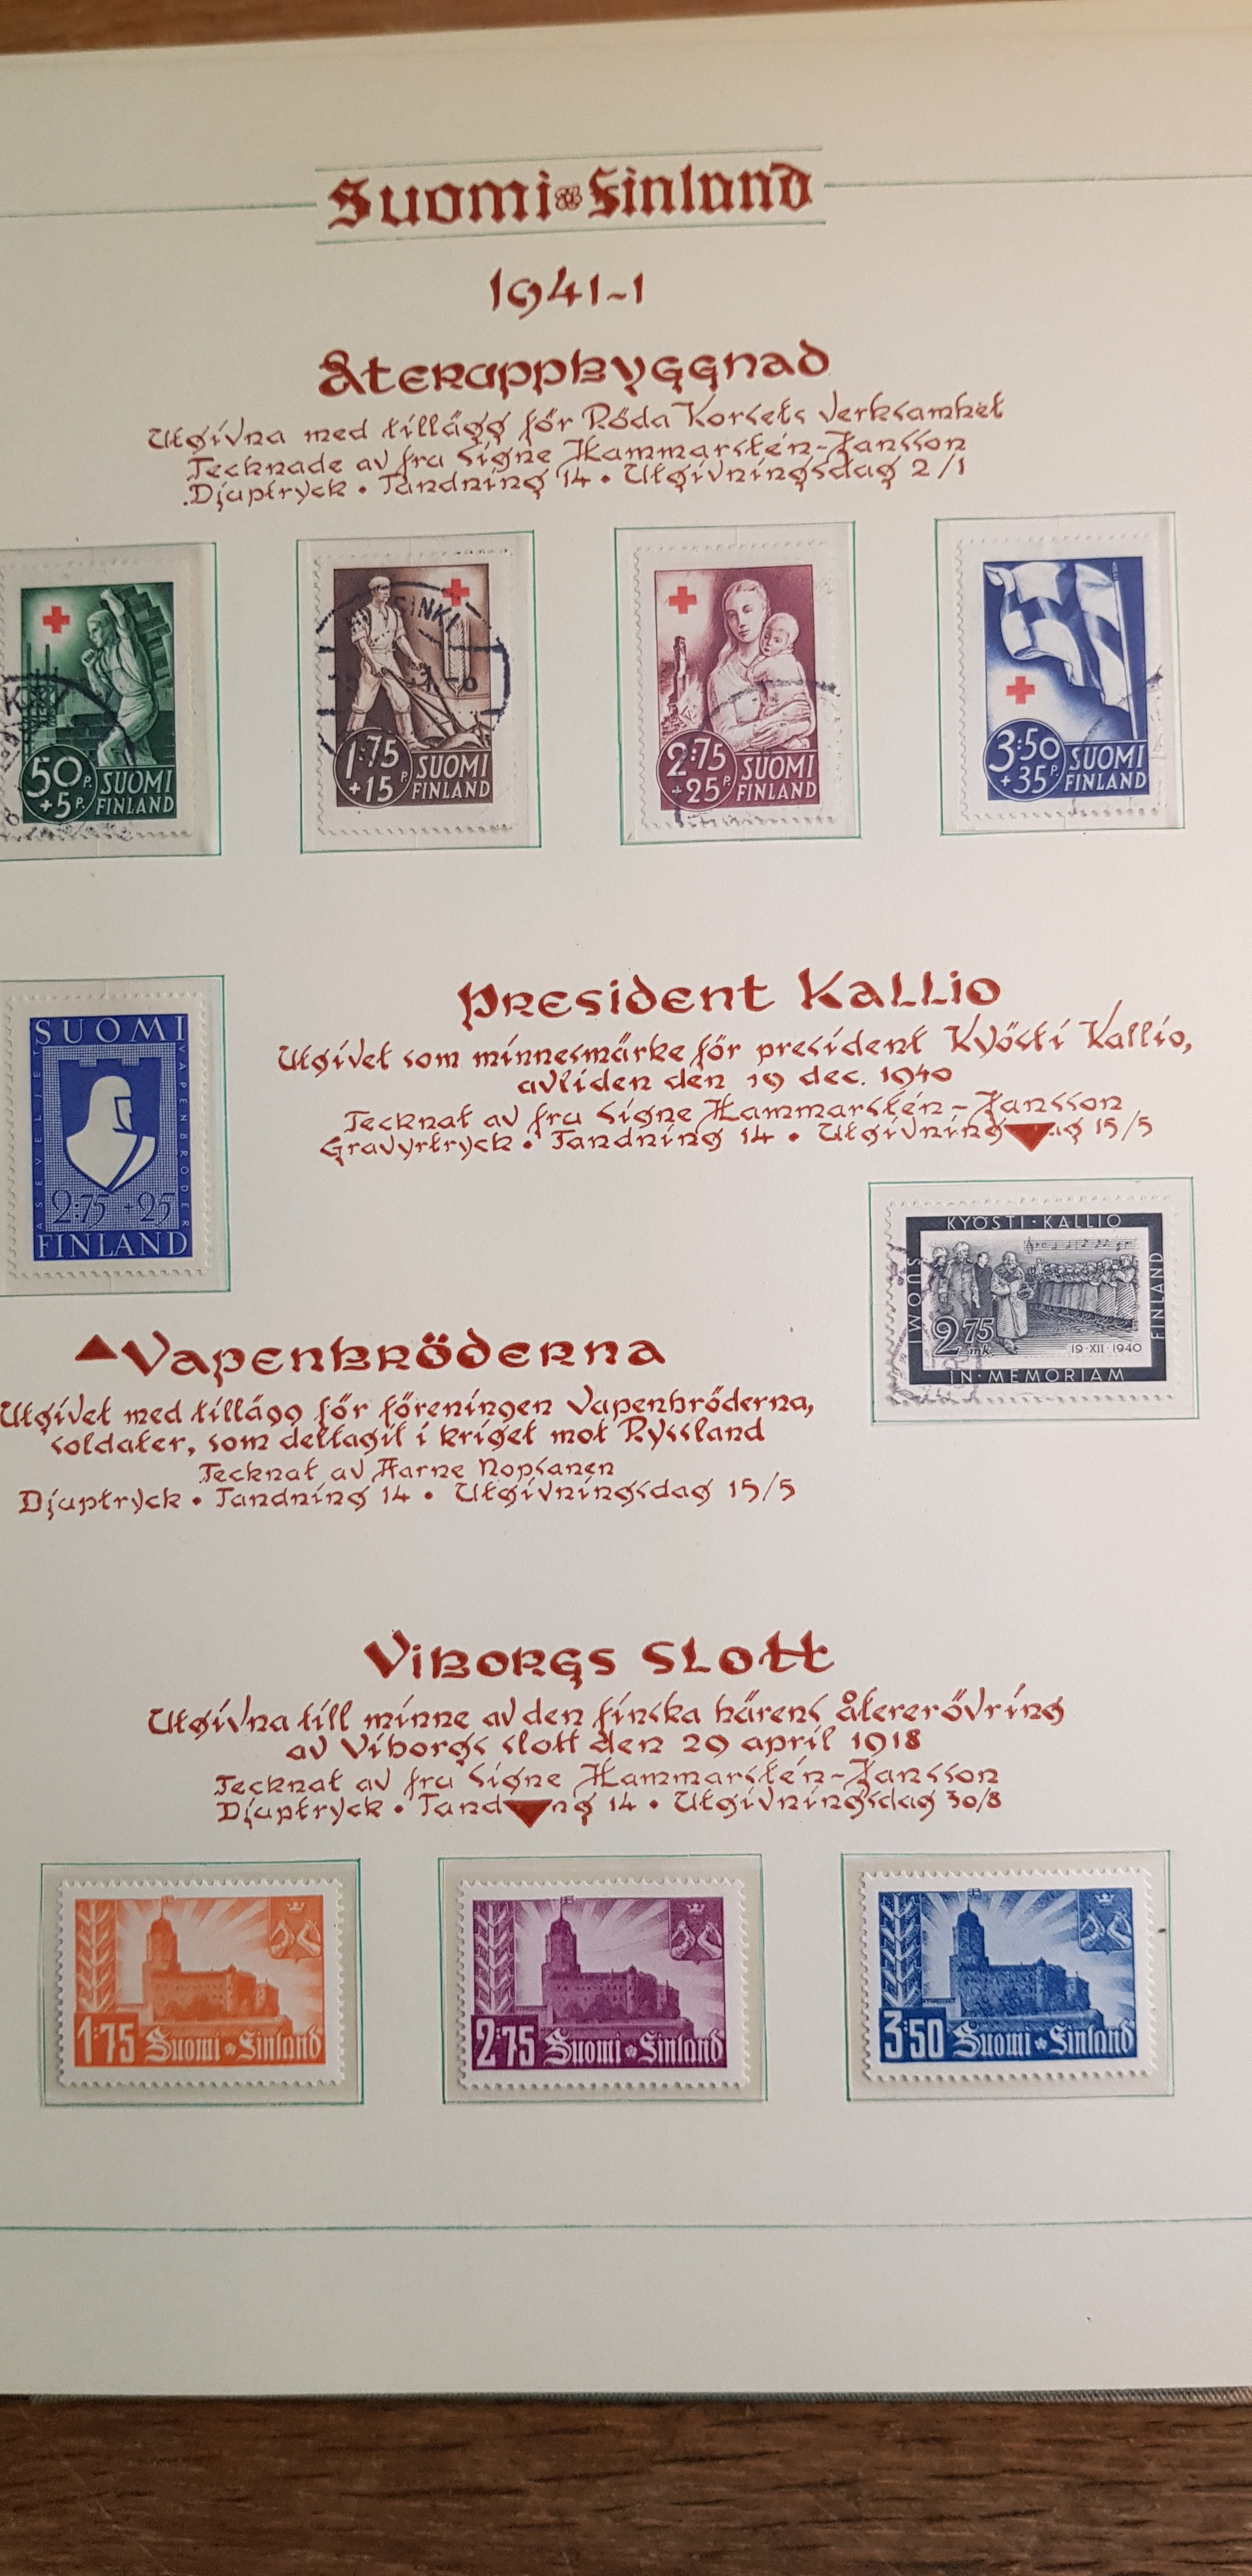 Suomi Finland
1941-1
Återuppbyggnad
Utgivna med tillägg för Röda Korsets verksamhet
Tecknade av fru Signe Hammarstén-Jansson
Djuptryck • Tandning 14 • Utgivningsdag 2/1
50 P. +5 P. SUOMI FINLAND
1:75 +15 P SUOMI FINLAND
2:75 +25 P. SUOMI FINLAND
3:50 +35 P. SUOMI FINLAND
SINKI
SUOMI
ASEVELJET
VAPENBRÖDER
2:75 +25
FINLAND
President Kallio
Utgivet som minnesmärke för president Kyösti Kallio,
avliden den 19 dec. 1940
Tecknat av fru Signe Hammarstén-Jansson
Gravyrtryck • Tandning 14 • Utgivning ag 15/5
KYÖSTI·KALLIO
SUOMI
FINLAND
2 75 mk
19·XII·1940
IN·MEMORIAM
Vapenbröderna
Utgivet med tillägg för föreningen Vapenbröderna,
soldater, som deltagit i kriget mot Ryssland
Tecknat av Aarne Nopsanen
Djuptryck • Tandning 14 • Utgivningsdag 15/5
Viborgs slott
Utgivna till minne av den finska härens återerövring
av Viborgs slott den 29 april 1918
Tecknat av fru Signe Hammarstén-Jansson
Djuptryck • Tand ng 14 • Utgivningsdag 30/8
1:75 Suomi Finland
2:75 Suomi Finland
3:50 Suomi Finland